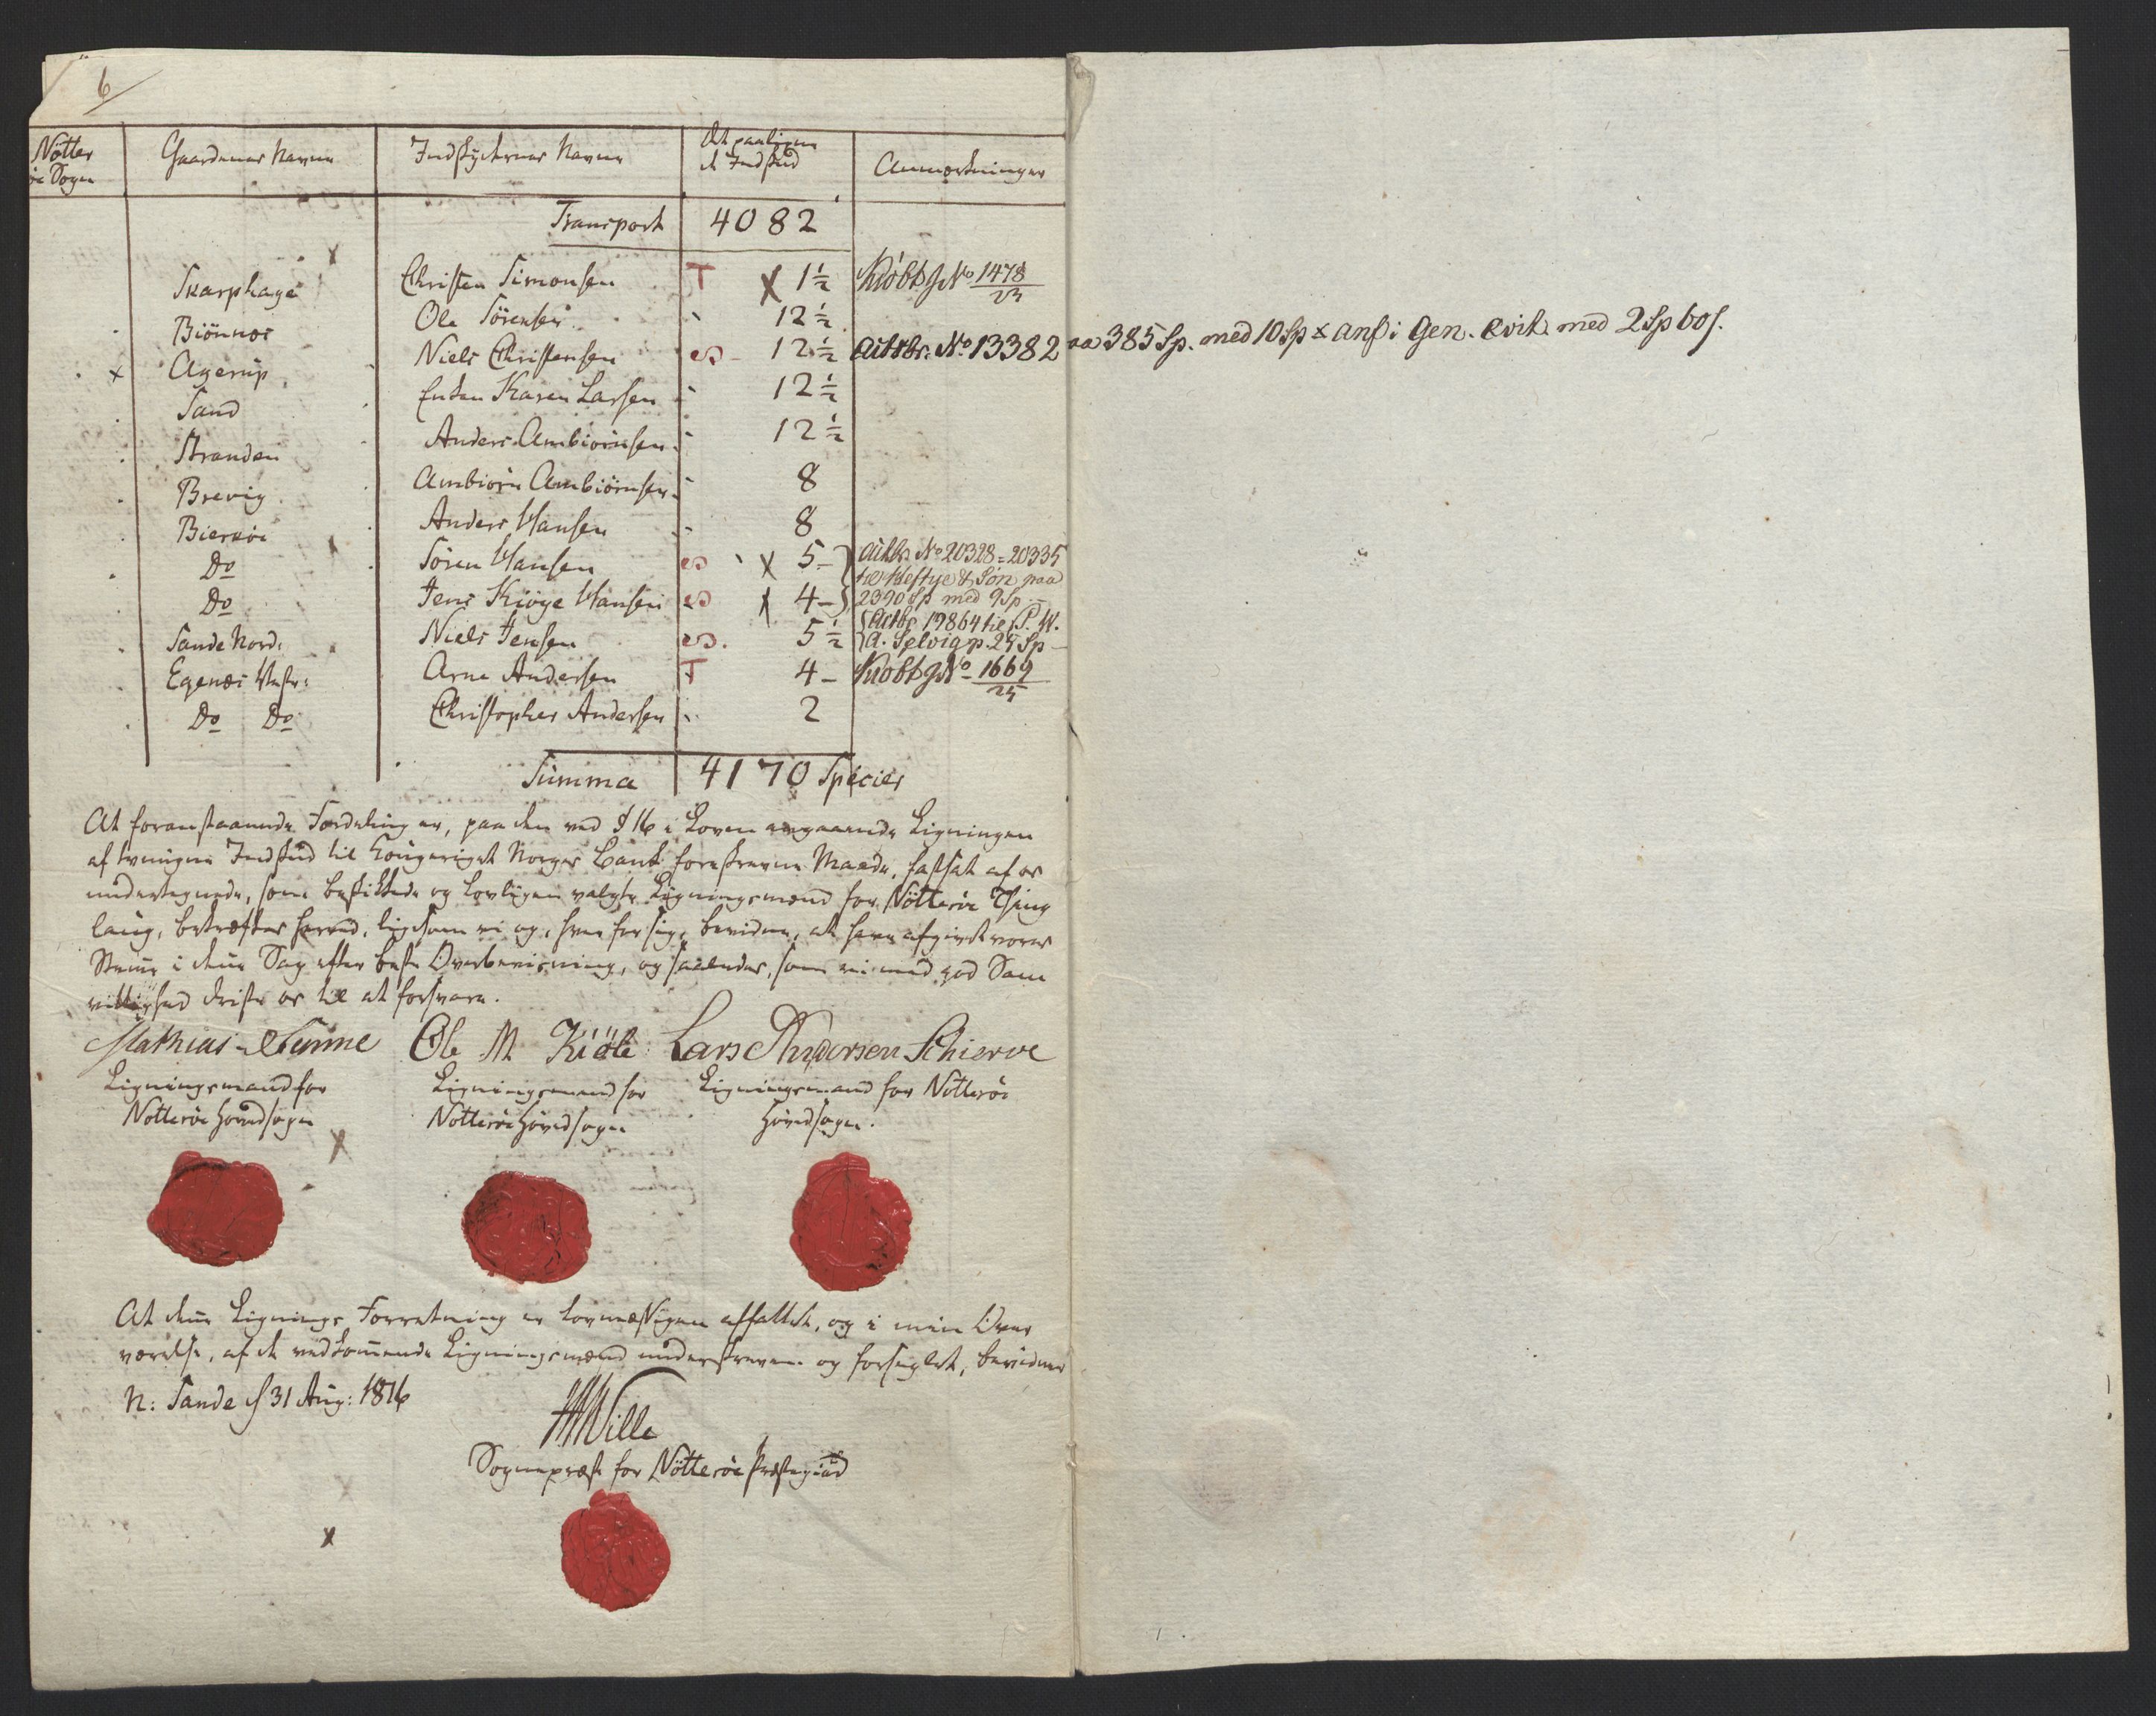 6
Nötter
öe Sogn
Gaardenes Navne
Indskydernes Navne
Det paaligne
de Indskud
Anmærkninger
Transport 4082
Skarphage Christen Simonsen T X 1½ Kiöbt g No 1478/23
Biönnes Ole Sörensen 12½
x Agerup Niels Christensen S 12½ Actbr. No 13382 paa 385 Sp. med 10 Sp x anf i Gen. Qvit. med 2 Sp 60 s.
Sand Enken Karen Larsen 12½
Stranden Anders Ambiörnsen 12½
Brevig Ambiörn Ambiörnsen 8
Bierköe Anders Hansen 8
Do Sören Hansen S X 5 - Actbr No 20328 = 20335
til Heftye & Sön paa
Do Jens Kiöge Hansen S X 4 - 2390 Sp med 9 Sp
Sande Nord: Niels Jensen S. 5½ Actbr 19864 til P. W.
A. Selvig p. 25 Sp
Egenes Vestr: Arne Andersen T 4 - Kiobt g No 1669/25
Do Do Christopher Andersen 2
Summa 4170 Species
At foranstaaende Fordeling er, paa den ved § 16 i Loven angaaende Ligningen
af tvungne Indskud til Kongeriget Norges Bank foreskrevne Maade, fastsat af os
undertegnede, som beskikkede og lovligen valgte Ligningsmænd for Nötteröe Thing
laug, bekræftes herved, ligesom vi og, hver for sig, bevidne, at have afgivet vores
Stemme i denne Sag efter beste Overbeviisning, og saaledes, som vi med god Sam
vittighed driste os til at forsvare.
Mathias Ole M Kiöle Lars Andersen Schierve
Ligningsmand for Ligningsmand for Ligningsmand for Nötteröe
Nötteröe Hovedsogn Nötteröe Hovedsogn Hovedsogn.
At denne Lignings Forretning er lovmæssigen affattet, og i min Over
værelse, af de vedkommende Ligningsmænd underskreven og forseglet, bevidner
N: Sande d 31 Aug: 1816
HHWille
Sognepræst for Nötteröe Præstegield